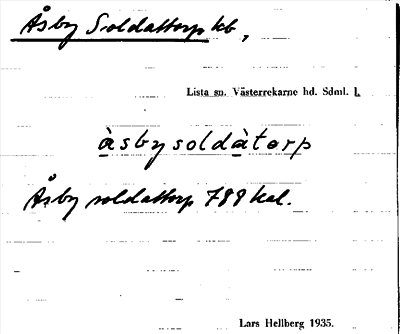 Åsby Soldattorp kb,
Lista sn. Västerrekarne hd. Sdml. l.
àsbysoldàtorp
Åsby soldattorp 789 kal.
Lars Hellberg 1935.